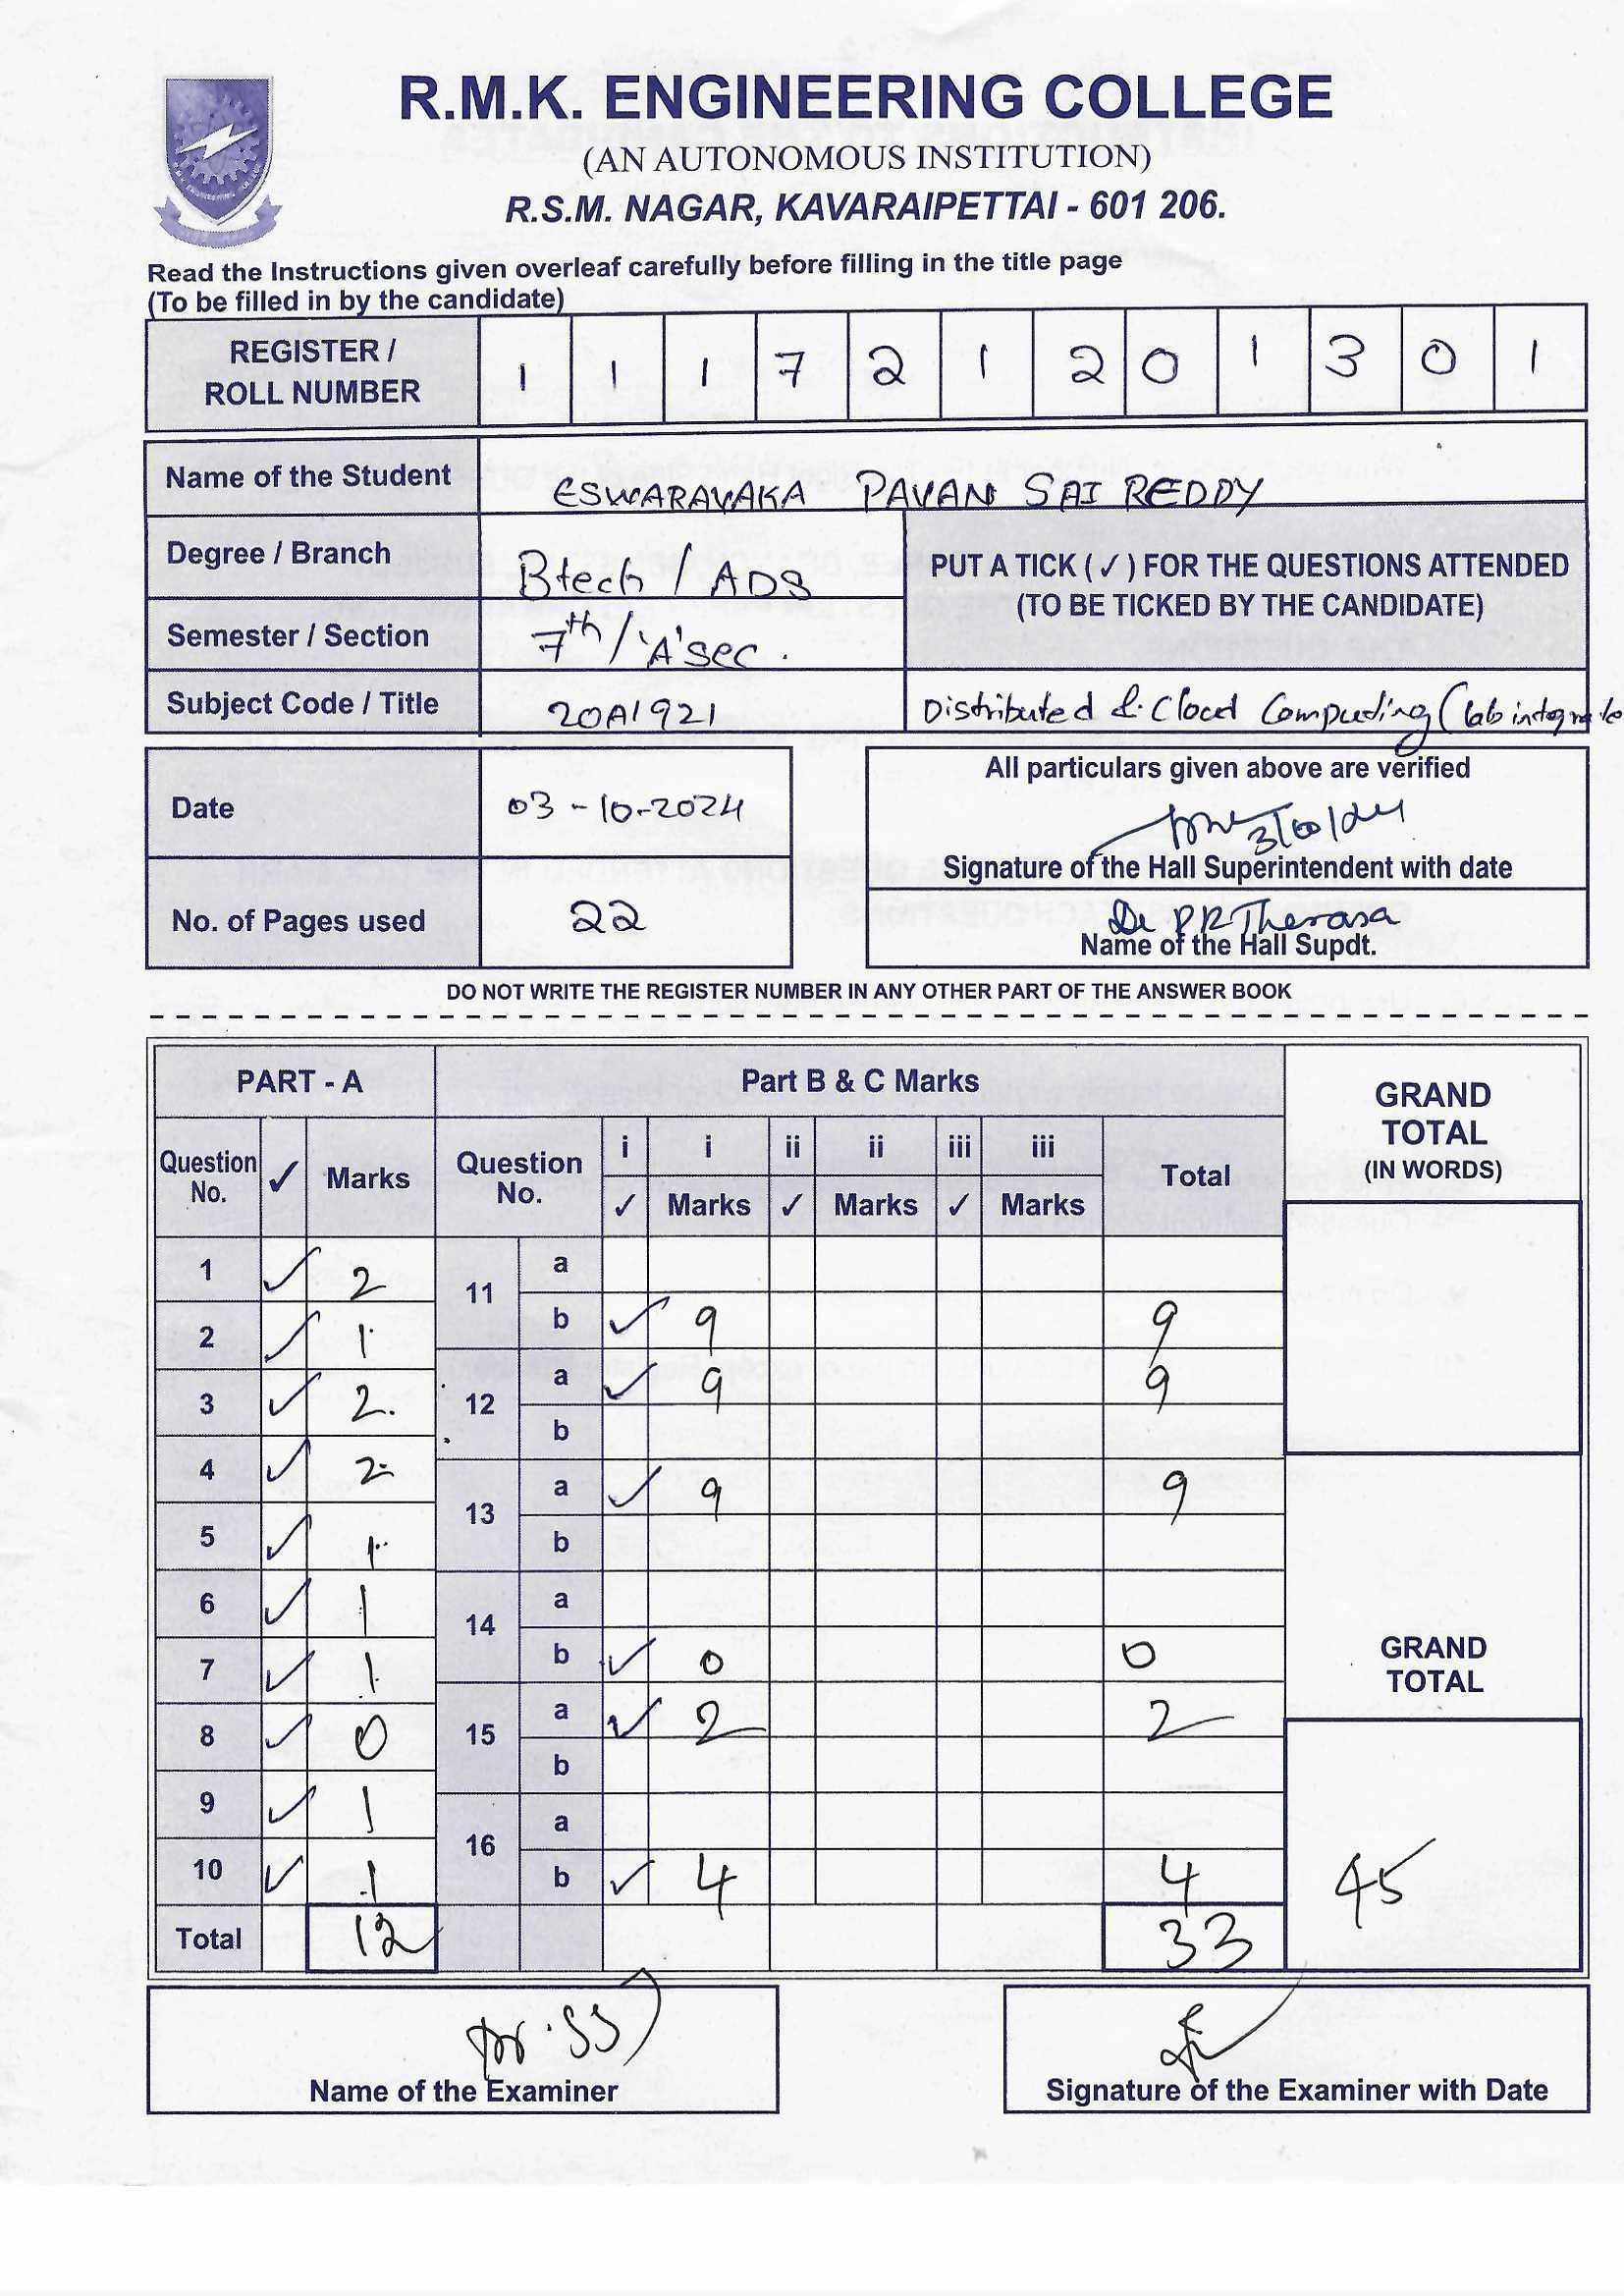 R.M.K. ENGINEERING COLLEGE
(AN AUTONOMOUS INSTITUTION)
R.S.M. NAGAR, KAVARAIPETTAI - 601 206.
Read the Instructions given overleaf carefully before filling in the title page
(To be filled in by the candidate)
REGISTER / ROLL NUMBER 1 1 1 7 2 1 2 0 1 3 0 1
Name of the Student ESWARAVAKA PAVAN SAI REDDY
Degree / Branch Btech / ADS
PUT A TICK (✓) FOR THE QUESTIONS ATTENDED
(TO BE TICKED BY THE CANDIDATE)
Semester / Section 7th / 'A' sec.
Subject Code / Title 20AI921 Distributed & Cloud Computing (lab integrate
Date 03-10-2024
All particulars given above are verified
3/10/24
Signature of the Hall Superintendent with date
No. of Pages used 22
Dr P R Therasa
Name of the Hall Supdt.
DO NOT WRITE THE REGISTER NUMBER IN ANY OTHER PART OF THE ANSWER BOOK
PART - A Part B & C Marks GRAND TOTAL (IN WORDS)
Question No. ✓ Marks Question No. i ✓ i Marks ii ✓ ii Marks iii ✓ iii Marks Total
1 ✓ 2 11 a
2 ✓ 1 b ✓ 9 9
3 ✓ 2. 12 a ✓ 9 9
4 ✓ 2 b
5 ✓ 1 13 a ✓ 9 9
b
6 ✓ 1 14 a
7 ✓ 1 b ✓ 0 0
GRAND TOTAL
8 ✓ 0 15 a ✓ 2 2
b
9 ✓ 1 16 a
10 ✓ 1 b ✓ 4 4
45
Total 12 33
Name of the Examiner
Signature of the Examiner with Date